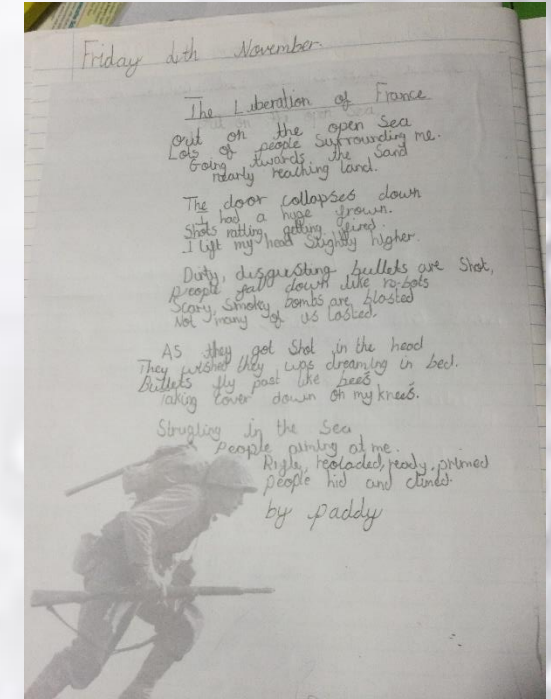 Friday 4th November.
The Liberation of France
Out on the open Sea
Lots of people surrounding me.
Going twards the Sand
nearly reaching land.
The door collapses down
I had a huge frown.
Shots ratling, getting fired.
I lift my head slightly higher.
Dirty, disgusting bullets are Shot,
people fall down like ro-bots
Scary, Smoky bombs are blasted
Not many of us lasted.
As they got Shot in the head
They wished they was dreaming in bed.
Bullets fly past like bees
Taking cover down on my knees.
Strugling in the Sea
people aiming at me.
Rifle, reoladed, ready, primed
people hid and
by paddy